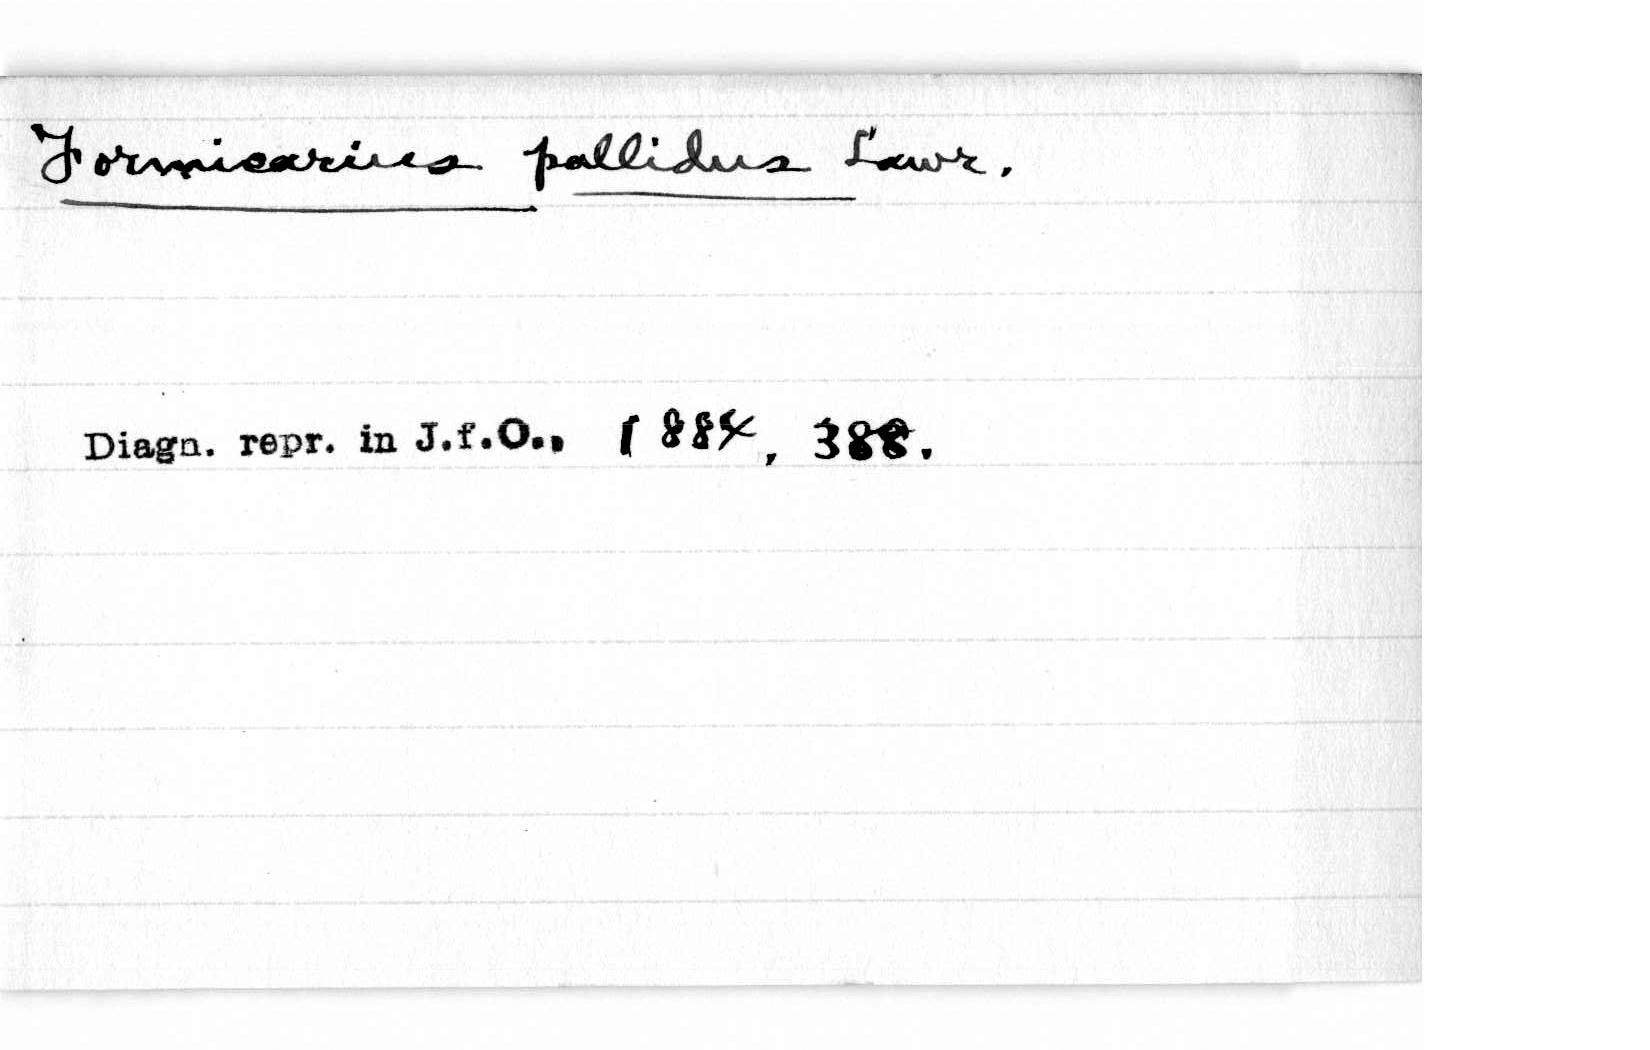 Formicarius pallidus Lawr.
Diagn. repr. in J.f.O., 1884, 388.